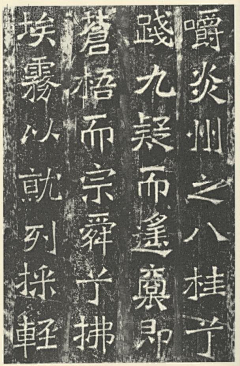 嚼炎州之八桂兮
踐九疑而遙奠即
蒼梧而宗舜兮拂
埃霧以就列採輕